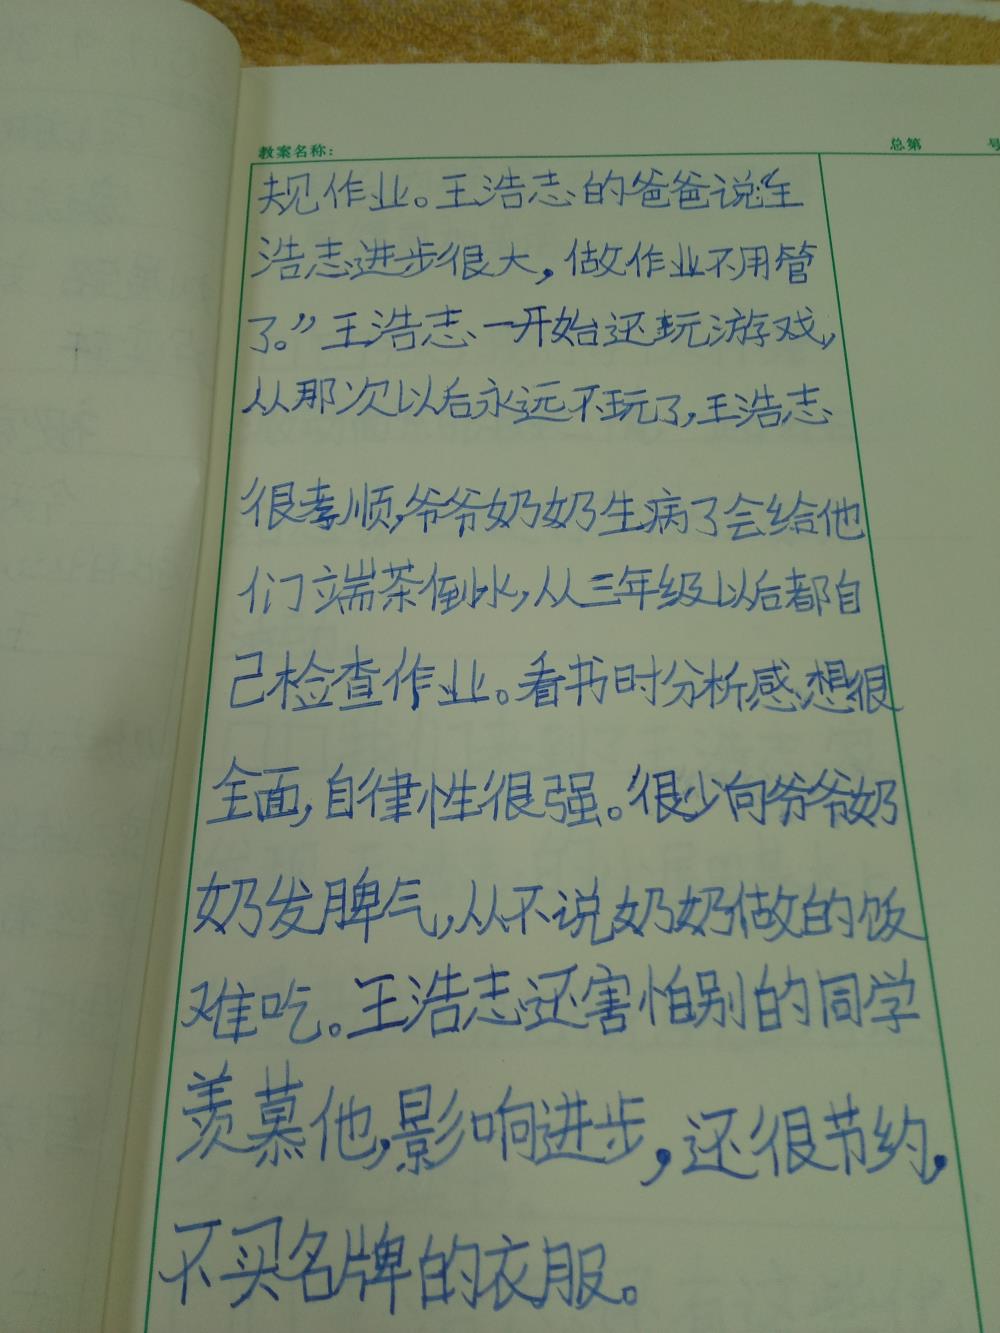 教案名称:
总第 号
规作业。王浩志的爸爸说:“王
浩志进步很大，做作业不用管
了。”王浩志一开始还玩游戏，
从那次以后永远不玩了，王浩志
很孝顺，爷爷奶奶生病了会给他
们端茶倒水，从三年级以后都自
己检查作业。看书时分析感想很
全面，自律性很强。很少向爷爷奶
奶发脾气，从不说奶奶做的饭
难吃。王浩志还害怕别的同学
羡慕他，影响进步，还很节约，
不买名牌的衣服。